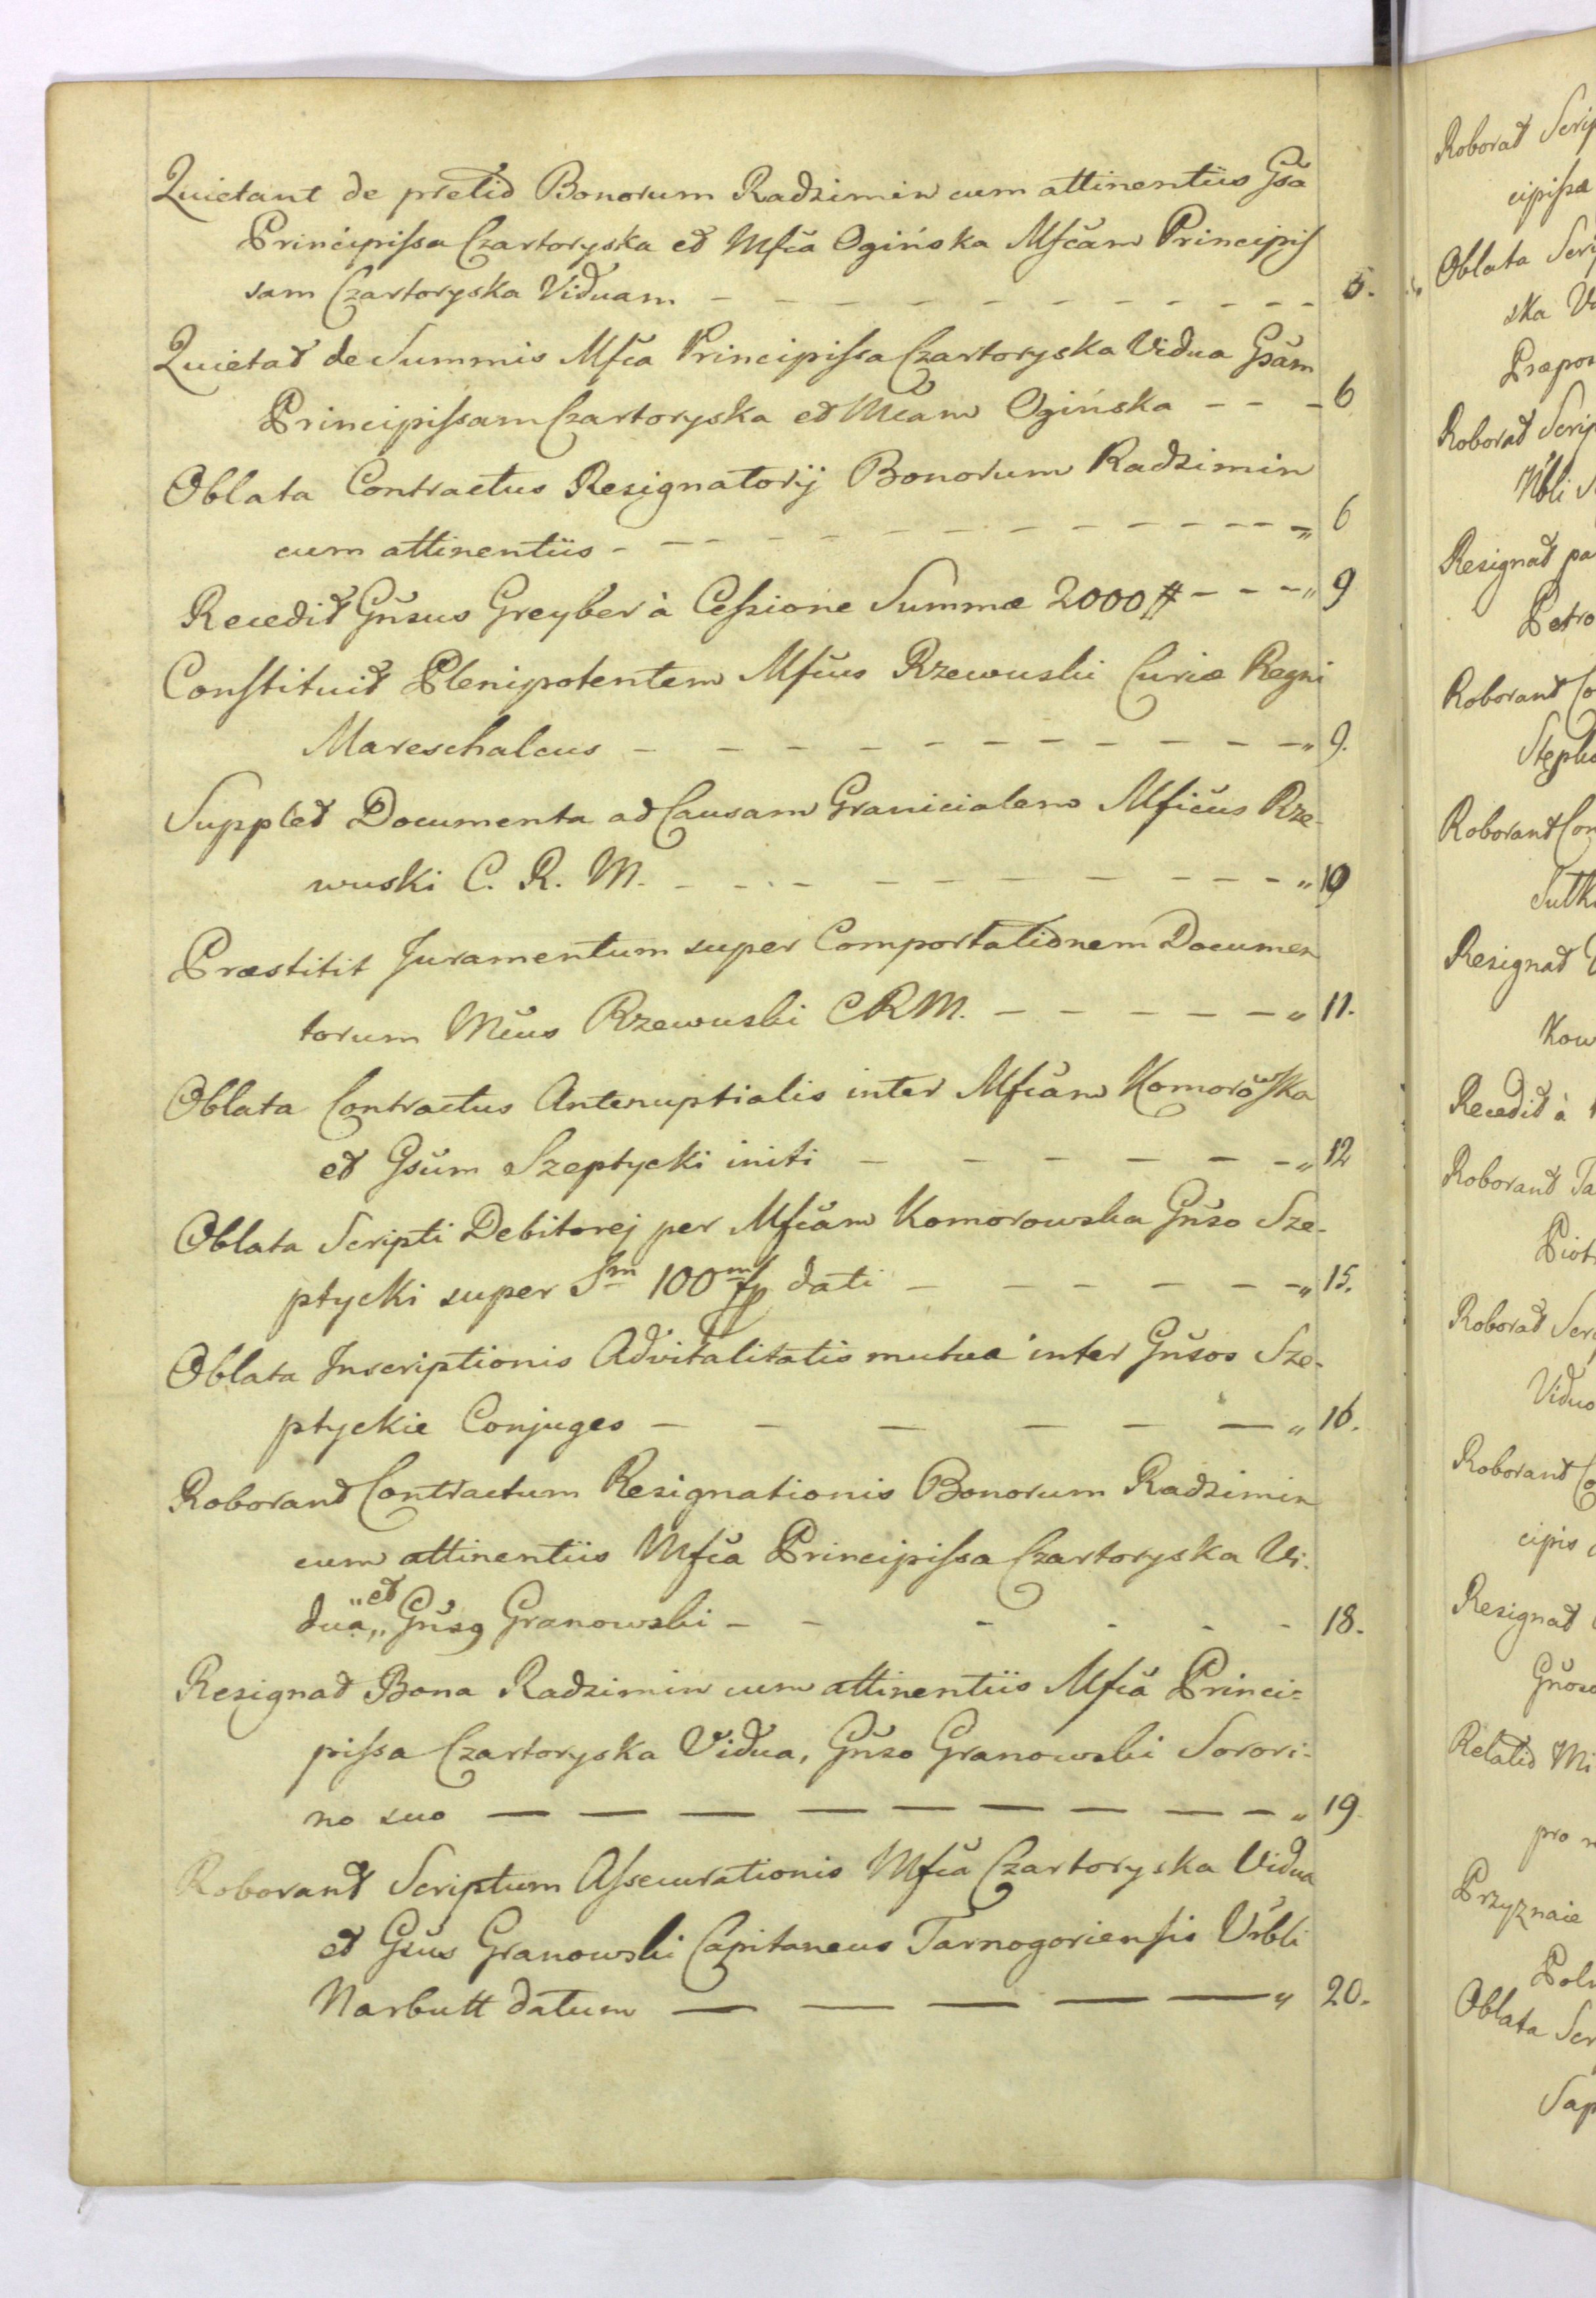 Quietant de pretio Bonorum Radzimin cum attinentiis Gsa
Principissa Czartoryska et Mfca Ogińska Mfcam Principis
sam Czartoryska Viduam - - - - - - - - - - - 5.
Quietat de Summis Mfca Principissa Czartoryska Vidua Gsam
Principissam Czartoryska et Mcam Ogińska - - - 6
Oblata Contractus Resignatorij Bonorum Radzimin
cum attinentiis - - - - - - - - - - - „ 6
Recedit Gnsus Greyber à Cessione Summæ 2000 # - - - „ 9
Constituit Plenipotentem Mfcus Rzewuski Curiæ Regni
Mareschalcus - - - - - - - - - - - „ 9.
Supplet Documenta ad Causam Granicialem Mficus Rze-
wuski C. R. M. - - - - - - - - - - „ 10
Præstitit Juramentum super Comportationem Documen
torum Mcus Rzewuski CRM. - - - - - „ 11.
Oblata Contractus Antenuptialis inter Mfcam Komorowska
et Gsum Szeptycki initi - - - - - - „ 12
Oblata Scripti Debitorej per Mfcam Komorowska Gnso Sze-
ptycki super Sm 100m fp dati - - - - - - „ 15.
Oblata Inscriptionis Advitalitatis mutuæ inter Gnsos Sze-
ptyckie Conjuges - - - - - - „ 16.
Roborant Contractum Resignationis Bonorum Radzimin
cum attinentiis Mfca Principissa Czartoryska Vi-
dua „et„ Gnsq Granowski - - - - - - 18.
Resignat Bona Radzimin cum attinentiis Mfca Princi=
pissa Czartoryska Vidua, Gnso Granowski Sorori-
no suo - - - - - - - - - „ 19
Roborant Scriptum Assecurationis Mfca Czartoryska Vidua
et Gsus Granowski Capitaneus Tarnogoriensis Urbli
Narbutt datum - - - - - „ 20.
Roborat Scrip
cipissæ
Oblata Scri
ska V
Præpos
Roborat Scrip
Resignat pa
Petro
Roborant Co
Stepho
Roborant Con
Sułk
Resignat
Kow
Recedit à
Roborant Ta
Piot
Roborat Scri
Viduo
Roborant Co
cipis
Resignat
Relatio Mi
pro
Przyznaie
Pol
Oblata Scr
Sap